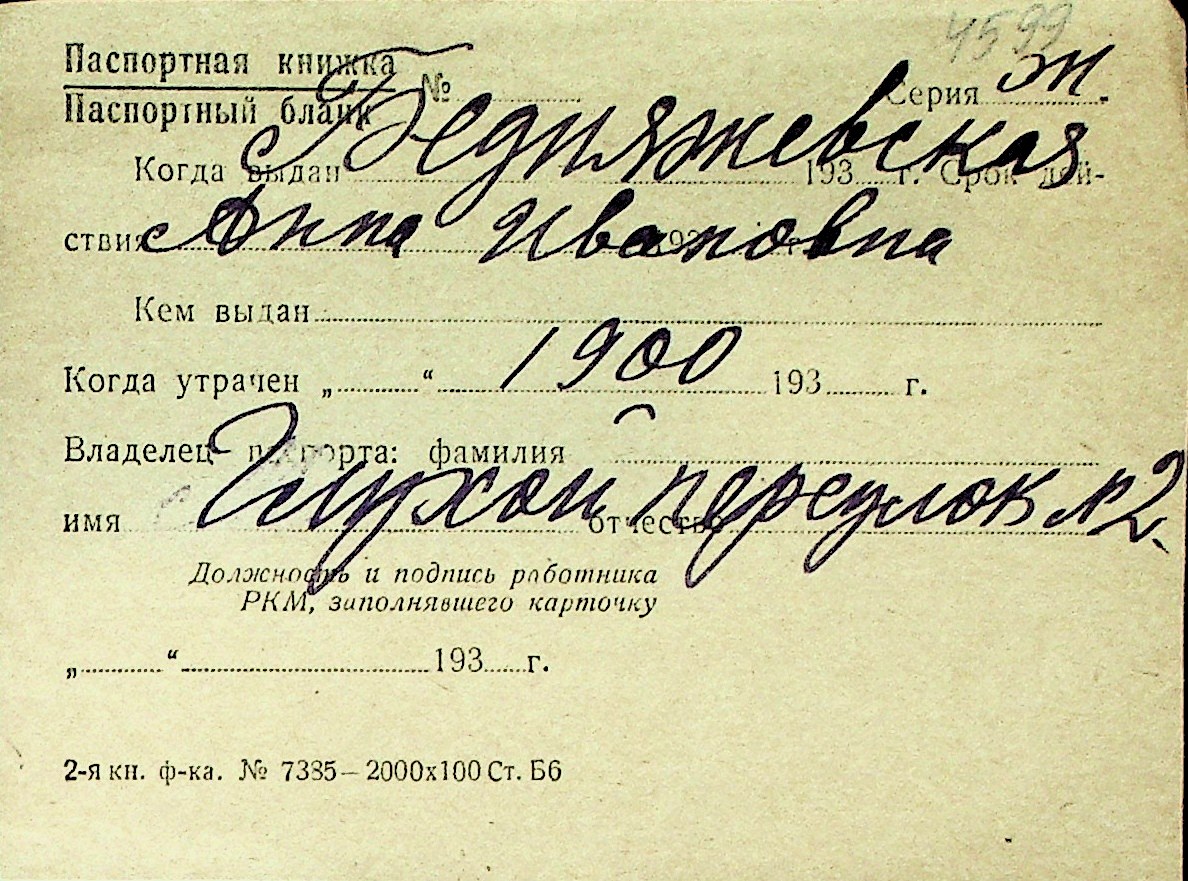 4599
Паспортная книжка
Паспортный бланк № Серия М.
Бедняжевская
Когда выдан 193 г. Срок дей-
ствия 193 г.
Анна Ивановна
Кем выдан
1900
Когда утрачен „ “ 193 г.
Владелец паспорта: фамилия
Глухой переулок №2.
имя отчество
Должность и подпись работника
РКМ, заполнявшего карточку
„ “ 193 г.
2-я кн. ф-ка. № 7385—2000х100 Ст. Б6